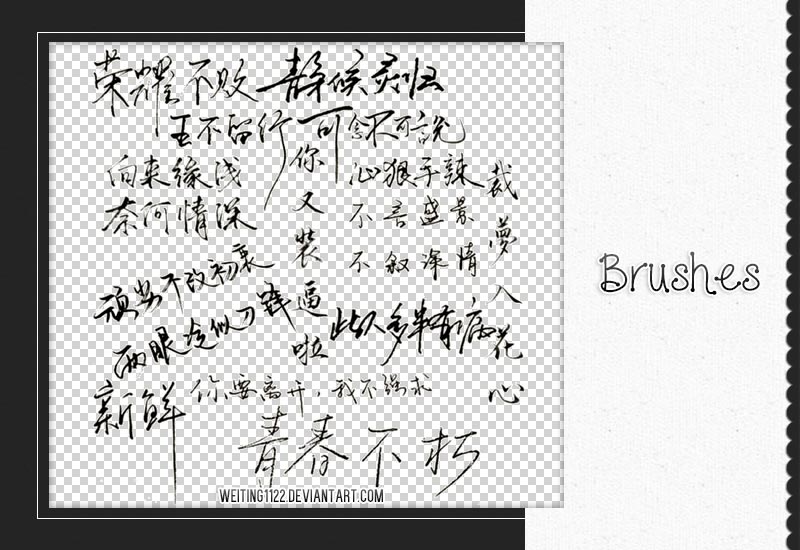 荣耀不败
静候灵归
王不留行
可念不可说
你又装逼啦
向来缘浅
奈何情深
心狠手辣
不言盛景
不叙深情
裁梦入花心
顽劣不改初衷
两眼冷似刀锋
此人多半有病
新鲜
你要离开，我不强求
青春不朽
WEITING1122.DEVIANTART.COM
Brushes